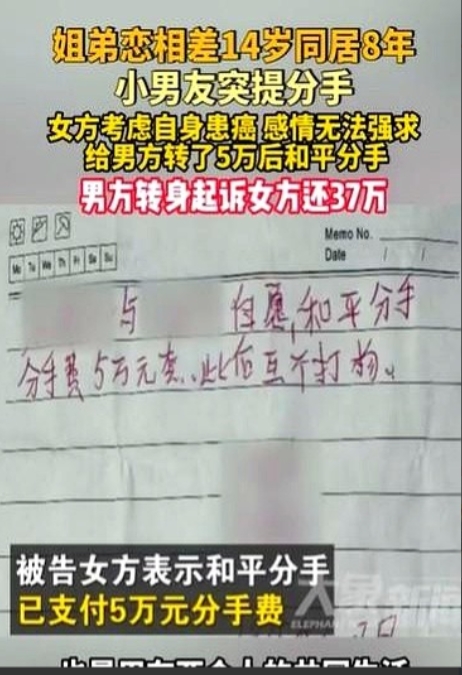 姐弟恋相差14岁同居8年
小男友突提分手
女方考虑自身患癌 感情无法强求
给男方转了5万后和平分手
男方转身起诉女方还37万
Memo No.
Mo Tu We Th Fr Sa Su
Date / /
与 自愿,和平分手
分手费5万元整.此后互不打扰.
被告女方表示和平分手
已支付5万元分手费
大象新闻
ELEPHANT
日